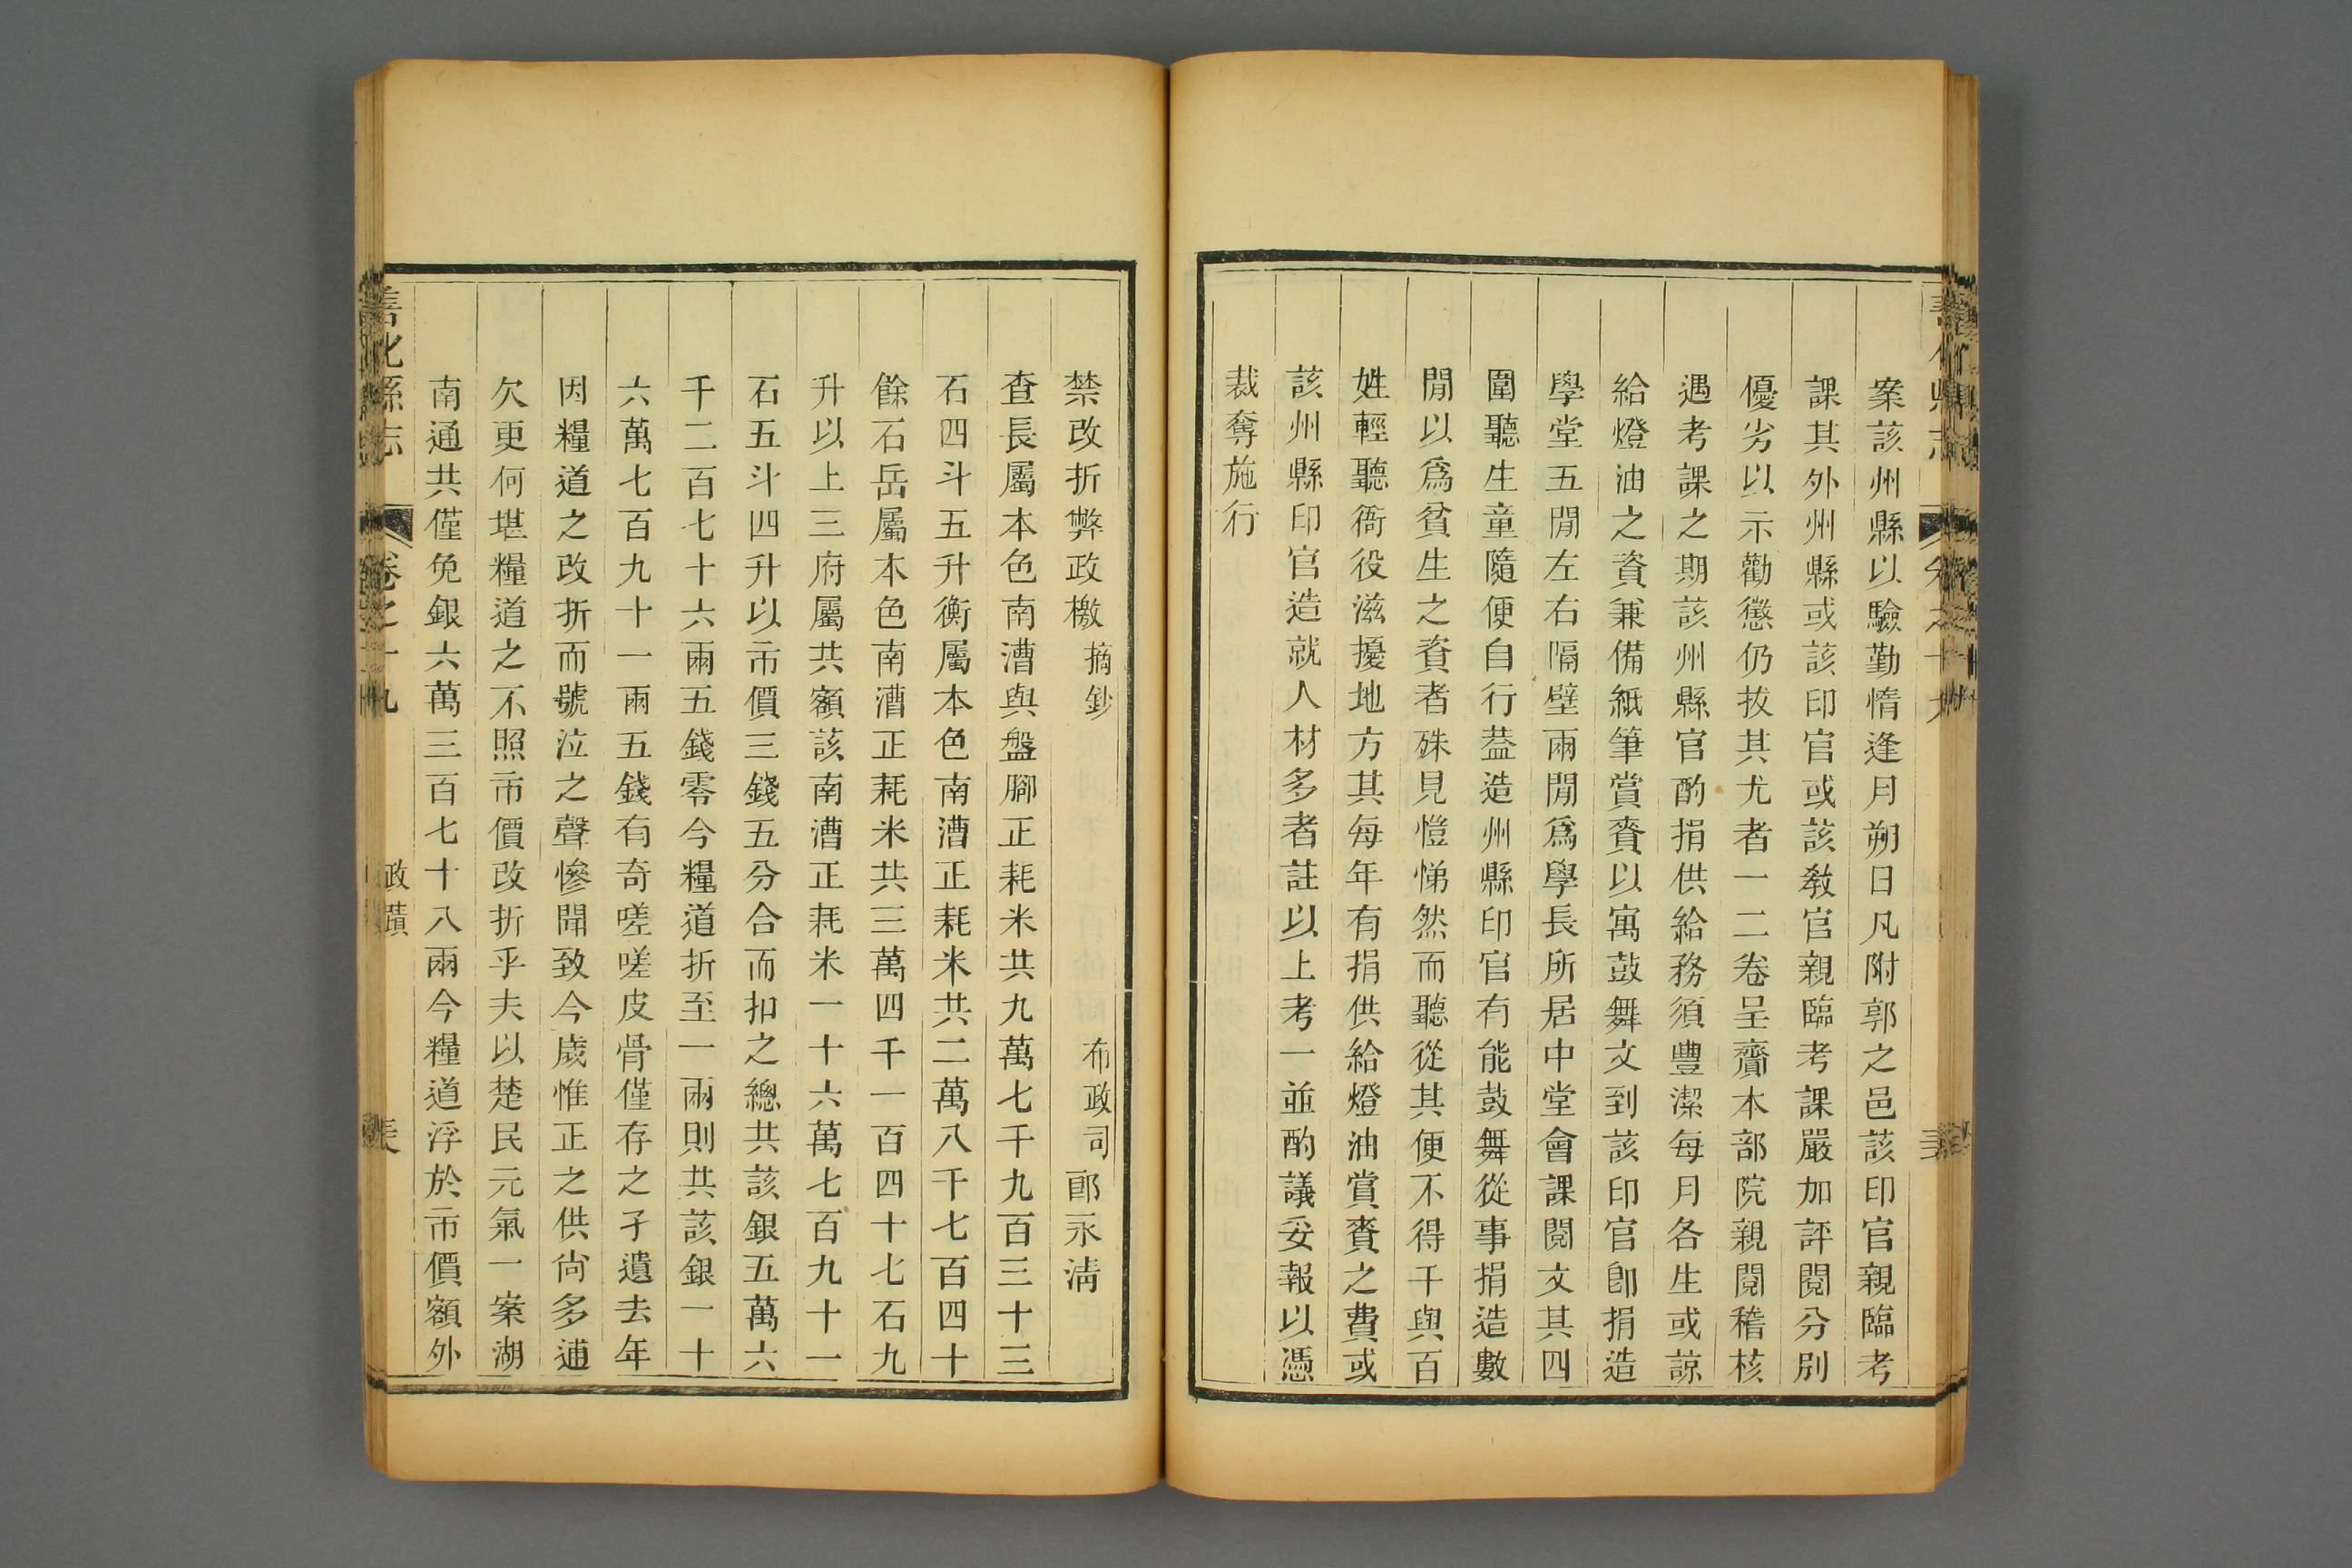 案該州縣以驗勤惰逢月朔日凡附郭之邑該印官親臨考
課其外州縣或該印官或該教官親臨考課嚴加評閱分別
優劣以示勸懲仍拔其尤者一二卷呈齎本部院親閱稽核
遇考課之期該州縣官酌捐供給務須豐潔每月各生或諒
給燈油之資兼備紙筆賞賚以寓鼓舞文到該印官卽捐造
學堂五閒左右隔壁兩閒爲學長所居中堂會課閱文其四
圍聽生童隨便自行葢造州縣印官有能鼓舞從事捐造數
閒以爲貧生之資者殊見愷悌然而聽從其便不得干與百
姓輕聽衙役滋擾地方其每年有捐供給燈油賞賚之費或
該州縣印官造就人材多者註以上考一並酌議妥報以憑
裁奪施行
禁改折弊政檄 摘鈔 布政司 郎永淸
查長屬本色南漕與盤腳正耗米共九萬七千九百三十三
石四斗五升衡屬本色南漕正耗米共二萬八千七百四十
餘石岳屬本色南漕正耗米共三萬四千一百四十七石九
升以上三府屬共額該南漕正耗米一十六萬七百九十一
石五斗四升以市價三錢五分合而扣之總共該銀五萬六
千二百七十六兩五錢零今糧道折至一兩則共該銀一十
六萬七百九十一兩五錢有奇嗟嗟皮骨僅存之孑遺去年
因糧道之改折而號泣之聲慘聞致今歲惟正之供尙多逋
欠更何堪糧道之不照市價改折乎夫以楚民元氣一案湖
南通共僅免銀六萬三百七十八兩今糧道浮於市價額外
善化縣志 卷之十九 政蹟